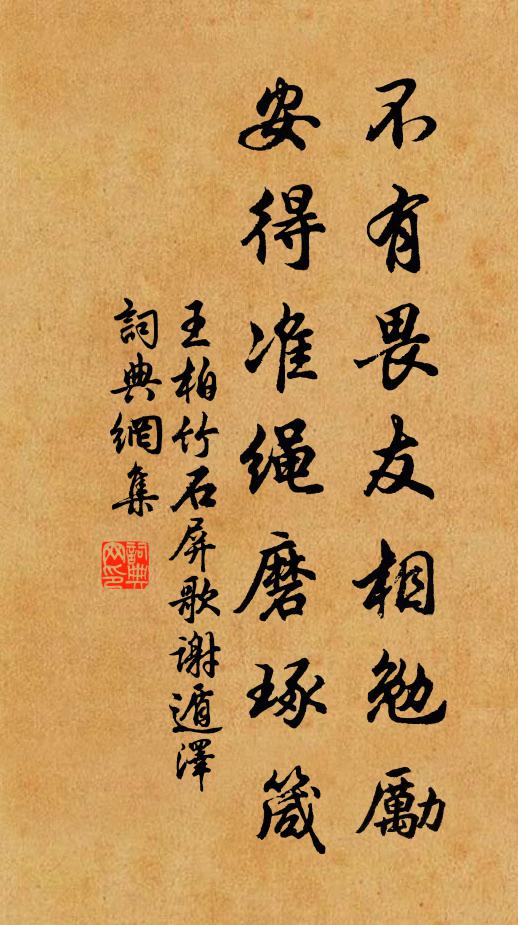 不有畏友相勉勵
安得准绳磨琢箴
王柏竹石屏歌谢遁澤
詞典網集
詞典网印